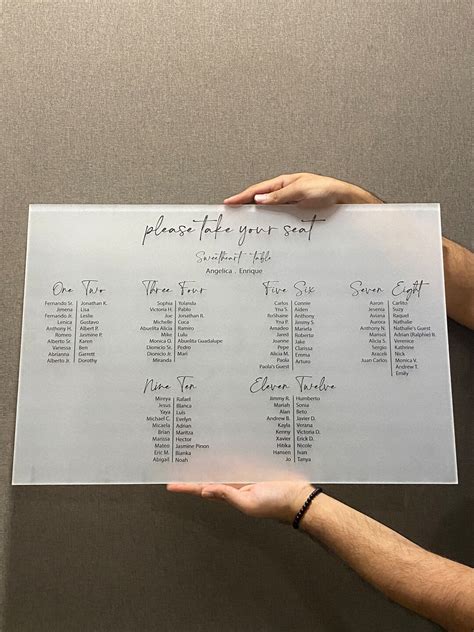 please take your seat
Sweetheart table
Angelica . Enrique
One Two
Fernando Sr. Jonathan K.
Jimena Lisa
Fernando Jr. Leslie
Lenica Gustavo
Anthony H. Albert P.
Romeo Jasmine P.
Alberto Sr. Karen
Vanessa Ben
Abrianna Garrett
Alberto Jr. Dorothy
Three Four
Sophia Yolanda
Victoria H. Pablo
Joe Jonathan R.
Michelle Luca
Abuelita Alicia Ramiro
Mike Lulu
Monica O. Abuelita Guadalupe
Dionicio Sr. Pedro
Dionicio Jr. Mari
Miranda
Five Six
Carlos Connie
Yna S. Aiden
Anthony
Yna P. Jimmy S.
Amadeo Mariela
Jared Roberto
Joanne Jake
Pepe Clarissa
Alicia M. Emma
Paola Arturo
Paola's Guest
Seven Eight
Aaron Carlito
Jevenia Suzy
Ariana Raquel
Aurora Emilio
Anthony N. Nathalie's Guest
Marisol Adrian (Ralphie) R.
Alicia S. Veronica
Sergio Katherine
Araceli Nick
Juan Carlos Monica V.
Andrew T.
Emily
Nine Ten
Mireya Rafael
Jesus Blanca
Yaya Luis
Michael C. Evelyn
Micaela Adrian
Brian Maritza
Marissa Hector
Mateo Jasmine Pinon
Eric M. Bianka
Abigail Noah
Eleven Twelve
Jimmy R. Humberto
Mariah Sonia
Alan Beto
Andrew B. Javier
Kayla Verana
Kenny Victoria D.
Xavier Erick D.
Hikita Nicole
Hansen Ivan
Jo Tanya